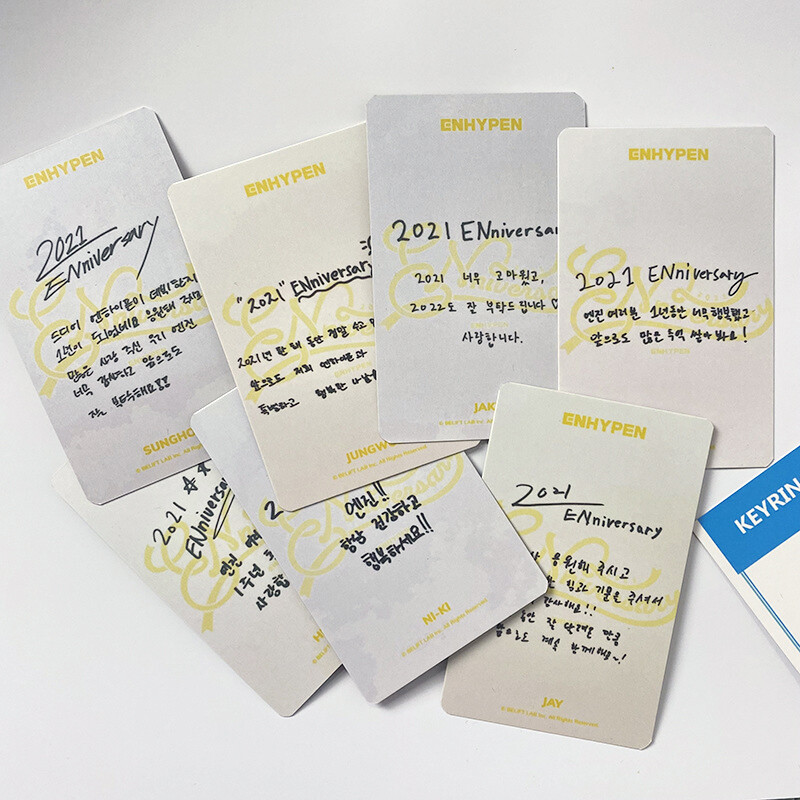 ENHYPEN
2021
ENniversary
드디어 엔하이픈이 데뷔한지
1년이 되었네요 응원해 주시고
많은 사랑 주신 우리 엔진
너무 감사하고 앞으로도
잘 부탁해요!!
SUNGHO
© BELIFT LAB Inc. All Rights Reserved.
ENHYPEN
"2021" ENniversary
2021년 한 해 동안 정말 수고
앞으로도 저희 엔하이픈과
특별하고 행복한 나날
JUNGW
© BELIFT LAB Inc. All Rights Reserved.
ENHYPEN
2021 ENniversa
2021 너무 고마웠고,
2022도 잘 부탁드립니다♡
사랑합니다.
JAK
ENHYPEN
2021 ENniversary
엔진 여러분 1년동안 너무 행복했고
앞으로도 많은 추억 쌓아봐요!
ENHYPEN
2021 ☆★
ENniversary
엔진
1주년
사랑합
H
엔진!!
항상 건강하고
행복하세요!!
NI-KI
© BELIFT LAB Inc. All Rights Reserved.
ENHYPEN
2021
ENniversary
응원해 주시고
힘과 기쁨을 주셔서
감사해요!!
잘 달려온 만큼
앞으로도 계속 함께해요~!
JAY
© BELIFT LAB Inc. All Rights Reserved.
KEYRIN